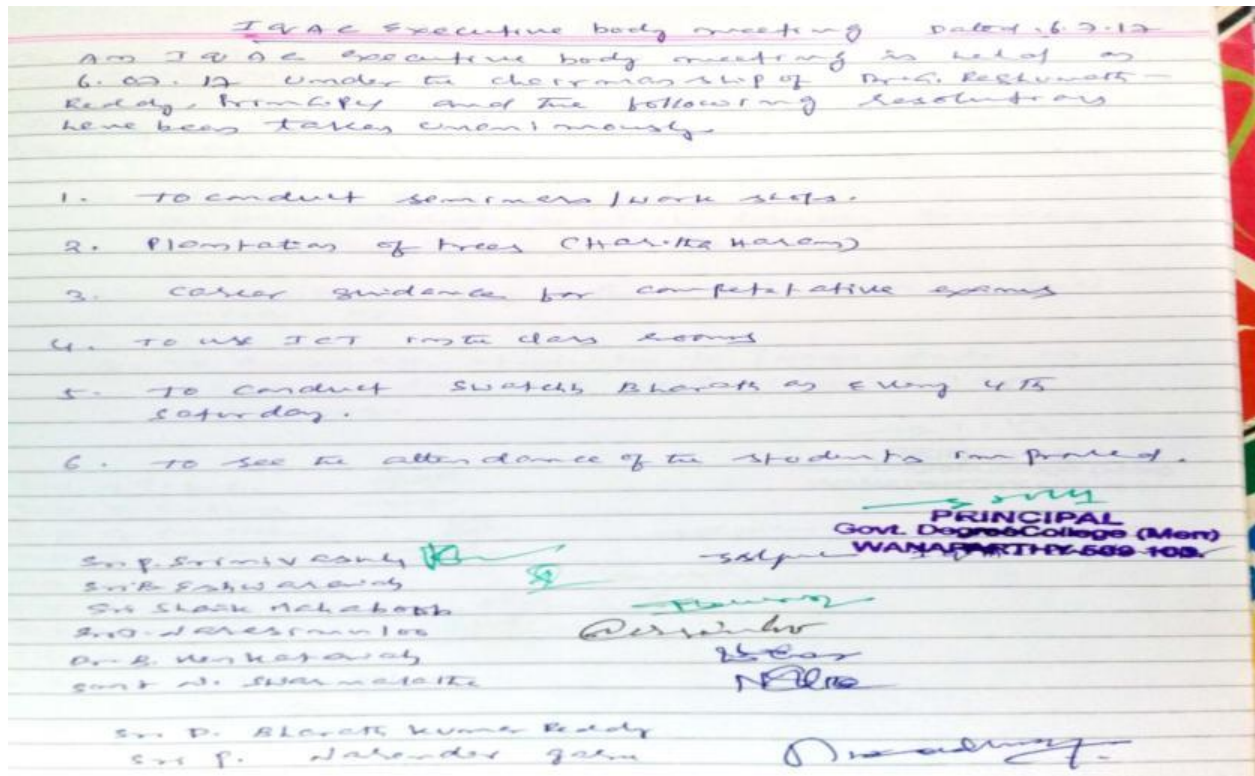 IQAC Executive body meeting Dated. 6.7.17
An IQAC executive body meeting is held on
6.07.17 under the chairmanship of Dr. G. Raghunath
Reddy, Principal and the following resolutions
have been taken unanimously.
1. To conduct seminars / work shops.
2. Plantation of trees (Haritha Haram)
3. career guidance for competetative exams
4. To use ICT in the class rooms
5. To conduct Swatchh Bharath on every 4th
saturday.
6. To see the attendance of the students improved.
PRINCIPAL
Govt. Degree College (Men)
WANAPARTHY-509 103.
Sri P. Srinivasulu
Sri B. Eshwaraiah
Sri Shaik Mahaboob
Narsimuloo
Dr. B. Venkataiah
Smt N. Swarnalatha
Sri D. Bharath Kumar Reddy
Sri P. Narender